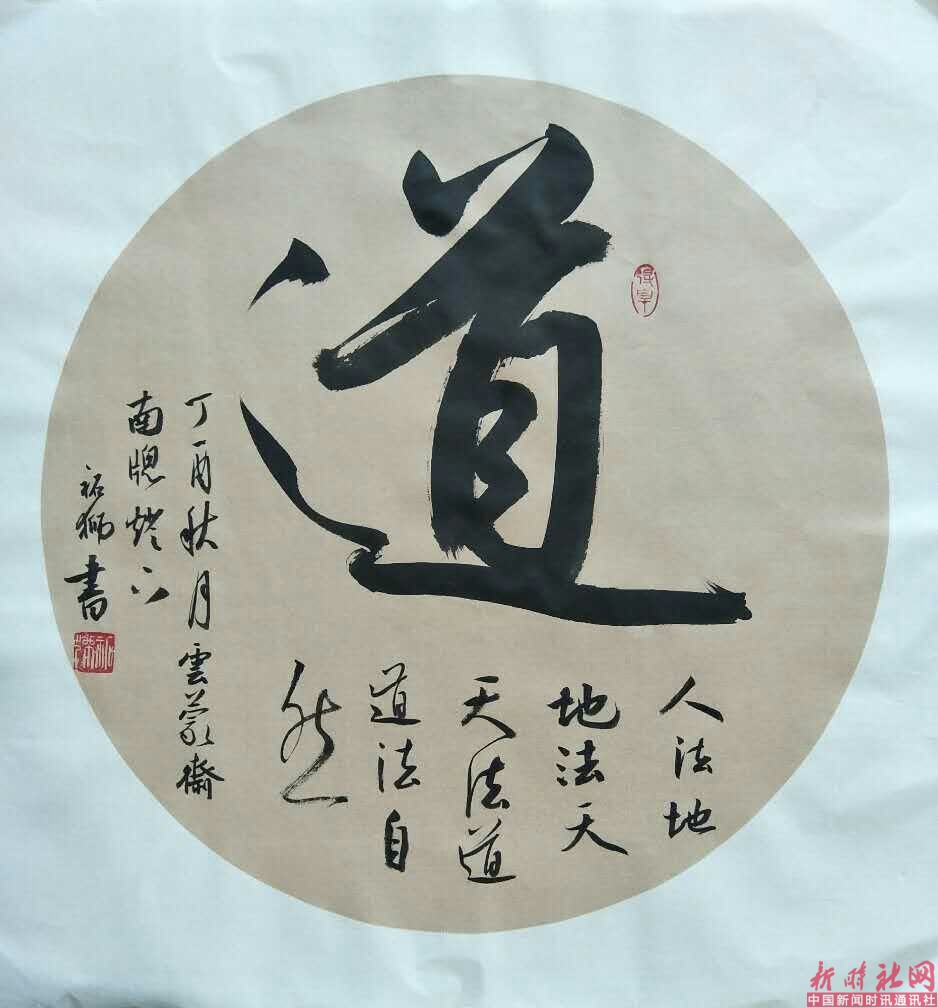 道
人法地
地法天
天法道
道法自
然
丁酉秋月雲蒙齋
南牕燈下
祐狮書
新时社网
中国新闻时讯通讯社